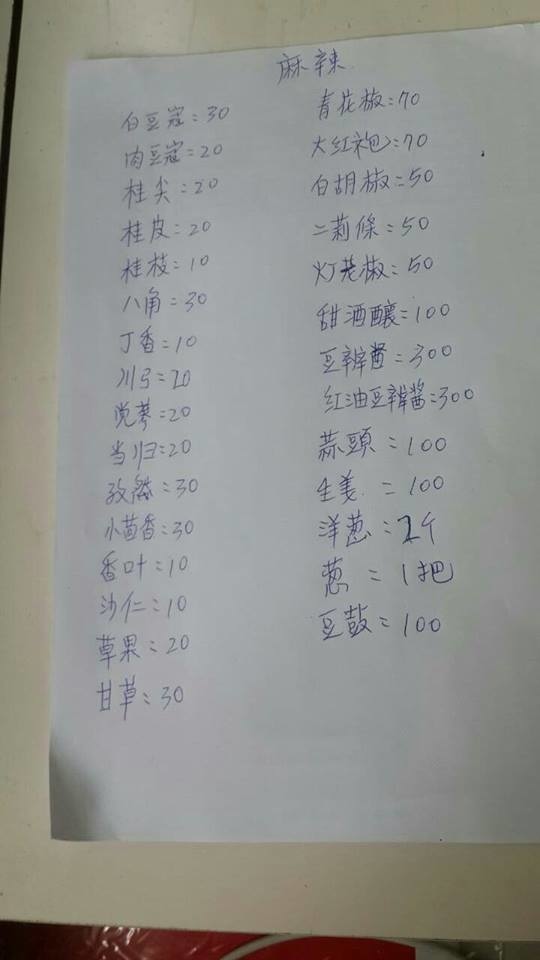 麻辣
白豆寇=30
肉豆寇=20
桂尖=20
桂皮=20
桂枝=10
八角=30
丁香=10
川弓=20
党蔘=20
当归=20
孜然=30
小茴香=30
香叶=10
沙仁=10
草果=20
甘草=30
青花椒=70
大红袍=70
白胡椒=50
二莉條=50
灯茏椒=50
甜酒釀=100
豆辦醬=300
红油豆辦醬=300
蒜頭=100
生姜=100
洋葱=2个
葱=1把
豆鼓=100